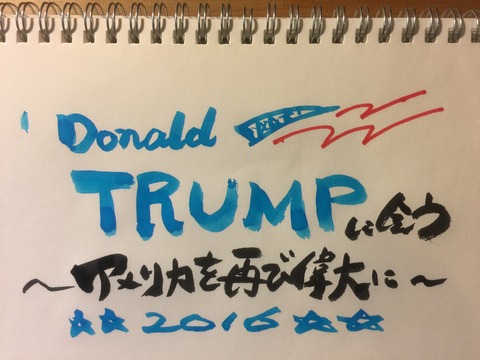 Donald
TRUMPに会う
～アメリカを再び偉大に～
☆☆2016☆☆